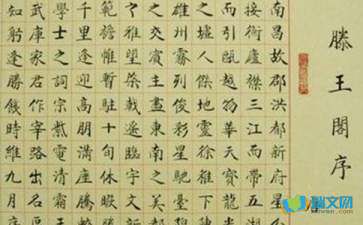 滕王閣序
南昌故郡洪都新府星
接衡廬襟三江而帶五湖
而引甌越物華天寶龍
之墟人傑地靈徐孺下
雄州霧列俊彩星馳臺
之交賓主盡東南之美都
雅望棨戟遙臨宇文新
範襜帷暫駐十旬休暇
千里逢迎高朋滿座騰蛟
學士之詞宗紫電清霜王
武庫家君作宰路出名區
知躬逢勝餞時維九月序
瑞文网